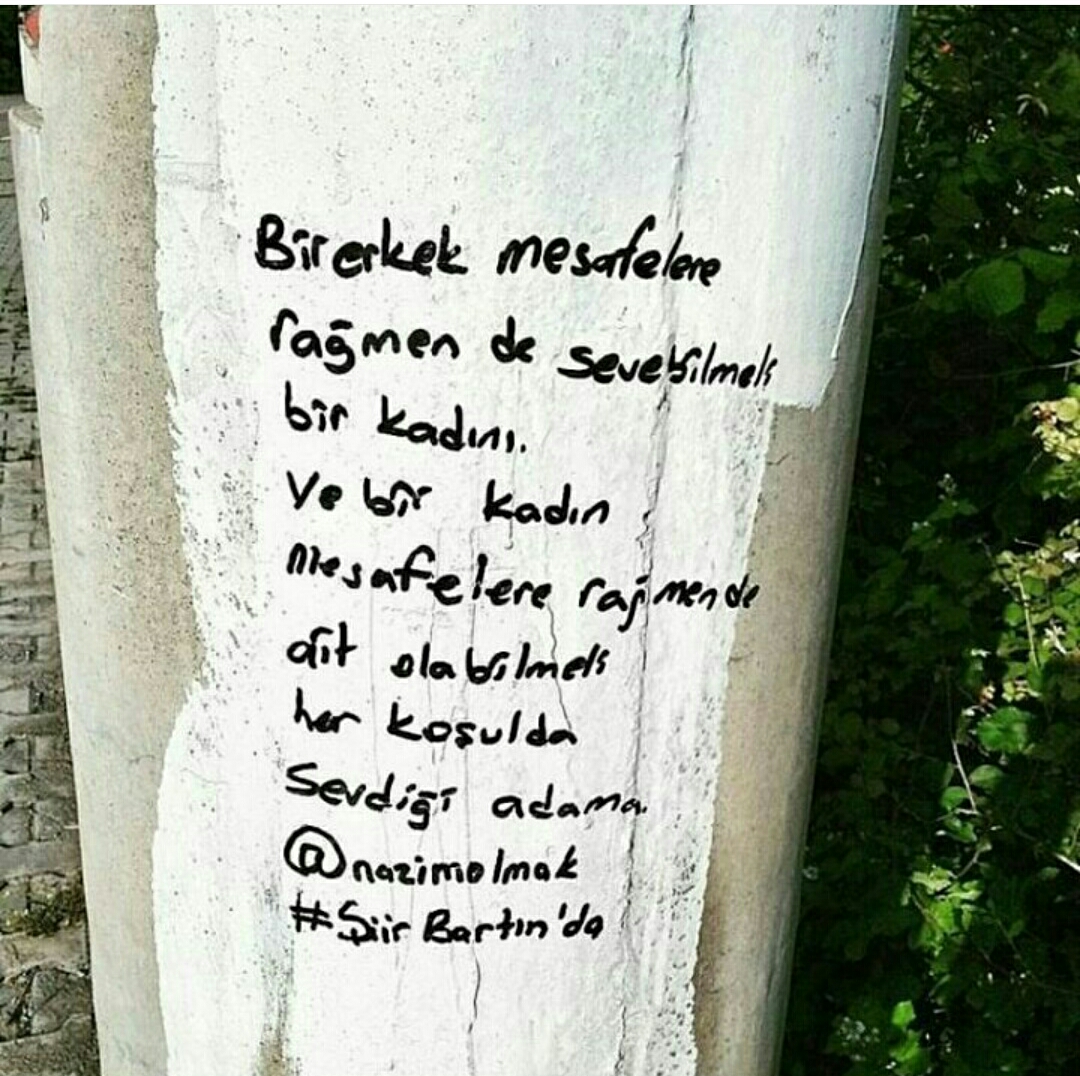 Bir erkek mesafelere
rağmen de sevebilmeli
bir kadını.
Ve bir kadın
mesafelere rağmen de
ait olabilmeli
her koşulda
sevdiği adama.
@nazimolmak
#Şiir Bartın'da